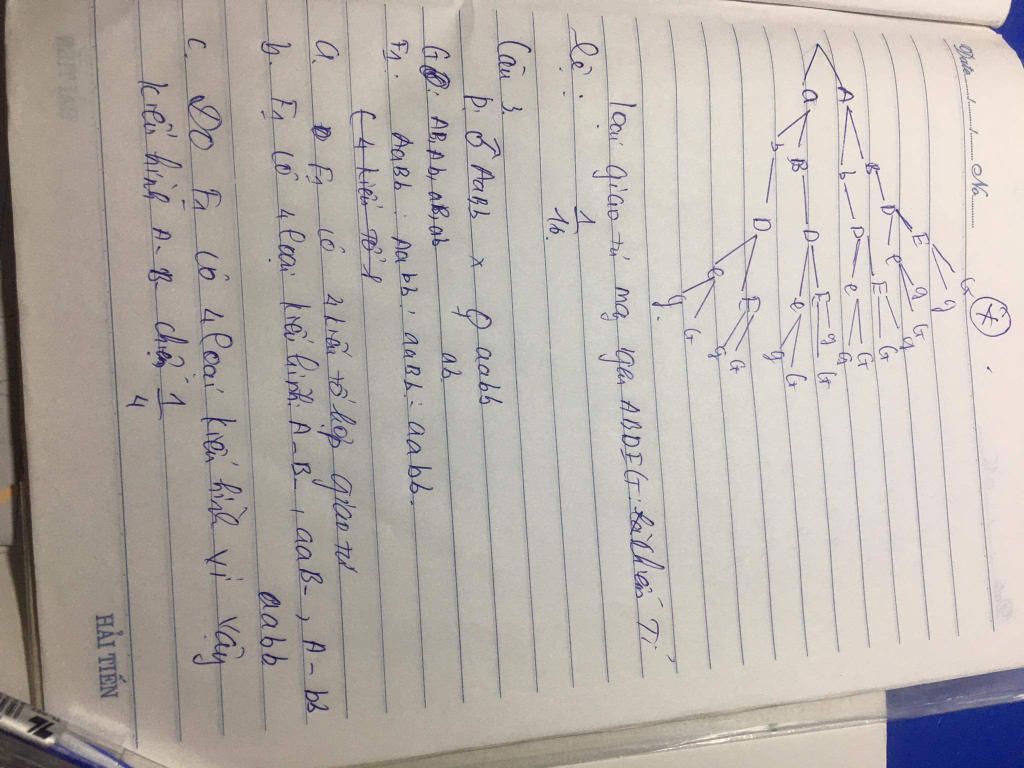 Date No
7
G
E g
B D e G
g
A b D E G
g
e G
g
a B D E G
g
e G
g
b D E G
g
e G
g
loại giao tử mg gen ABDEG chiếm Tỉ
lệ: 1/16.
Câu 3.
P: ♂ AaBb × ♀ aabb
G: AB, Ab, aB, ab ab
F1: AaBb : Aabb : aaBb : aabb.
(4 kiểu tổ
a. F1 có 4 kiểu tổ hợp giao tử
b. F1 có 4 loại kiểu hình A-B-, aaB-, A-bb
aabb
c. Do F1 có 4 loại kiểu hình vì vậy
kiểu hình A-B- chiếm 1/4
HẢI TIẾN